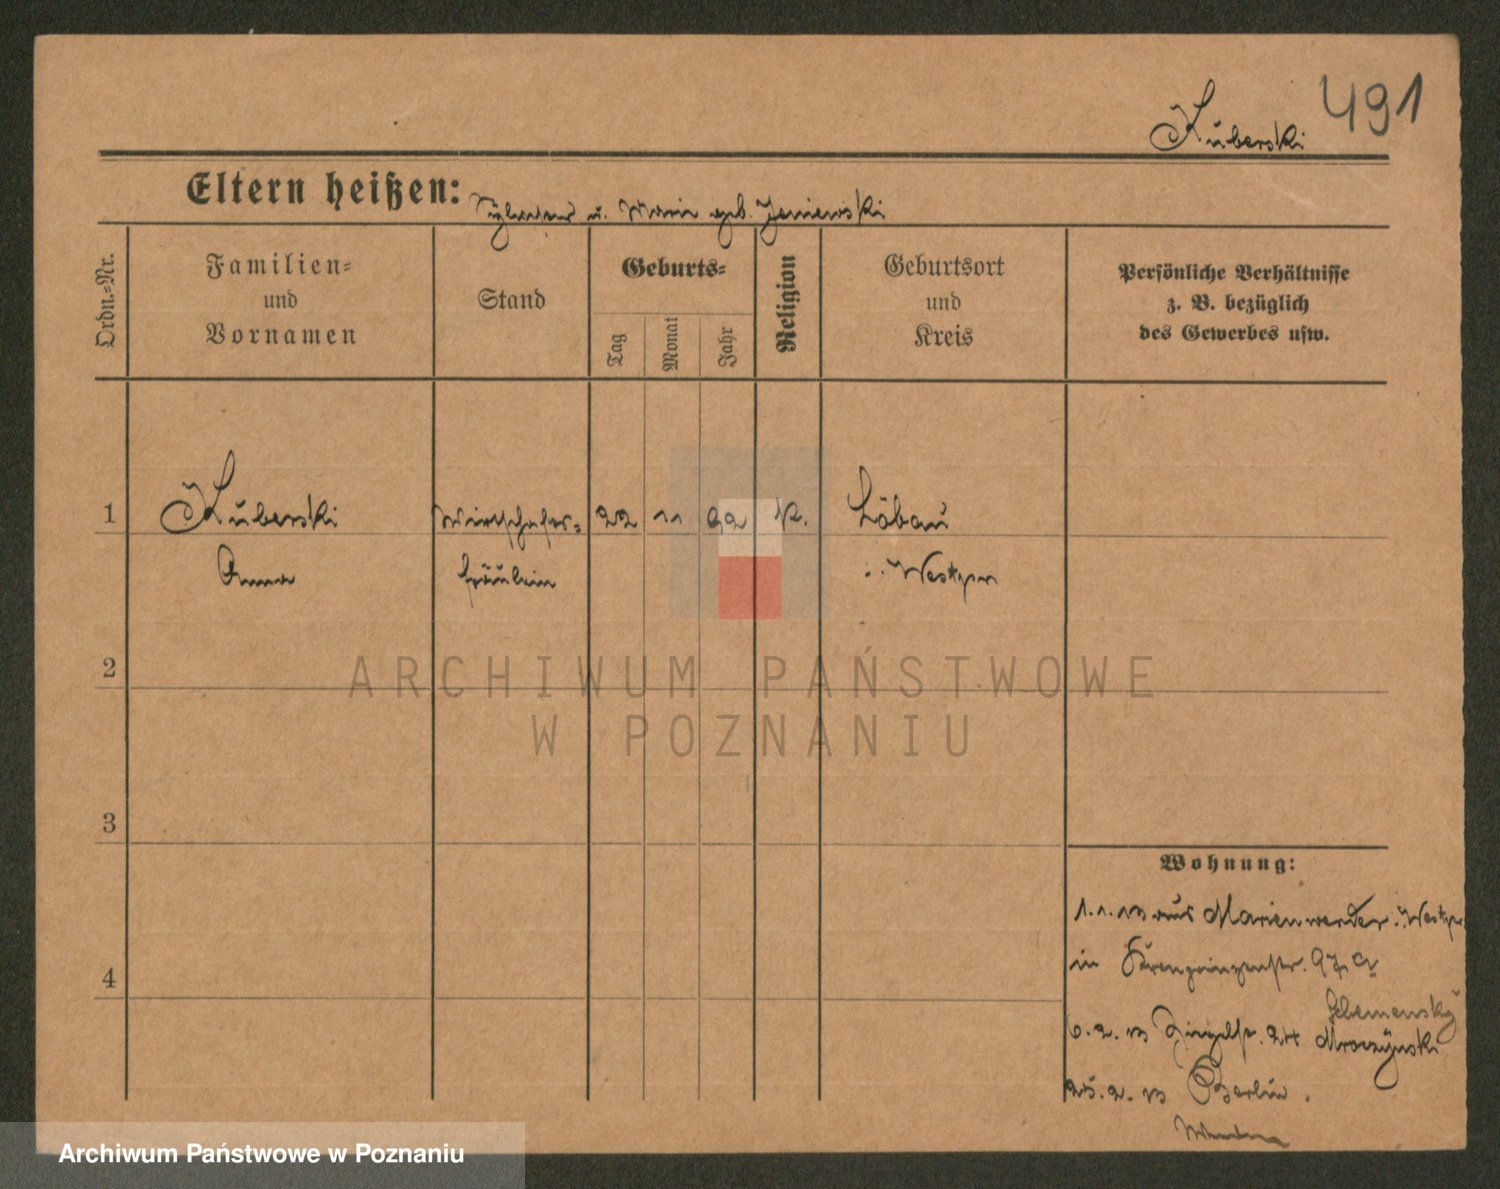 491
Kuberski
Eltern heißen: u. Marie geb. Jeniewski
Ordn.=Nr.
Familien=
und
Vornamen
Stand
Geburts=
Tag
Monat
Jahr
Religion
Geburtsort
und
Kreis
Persönliche Verhältnisse
z. B. bezüglich
des Gewerbes usw.
1 Kuberski Wirtschafts= 22 11 92 K. Löbau
Anna fräulein i. Westpr
2
3
4
Wohnung:
1.1.13 aus Marienwerder i. Westpr
in Kronprinzenstr. 97
6.2.13 24 Mroczynski
25.2.13 Berlin.
ARCHIWUM PAŃSTWOWE
W POZNANIU
Archiwum Państwowe w Poznaniu